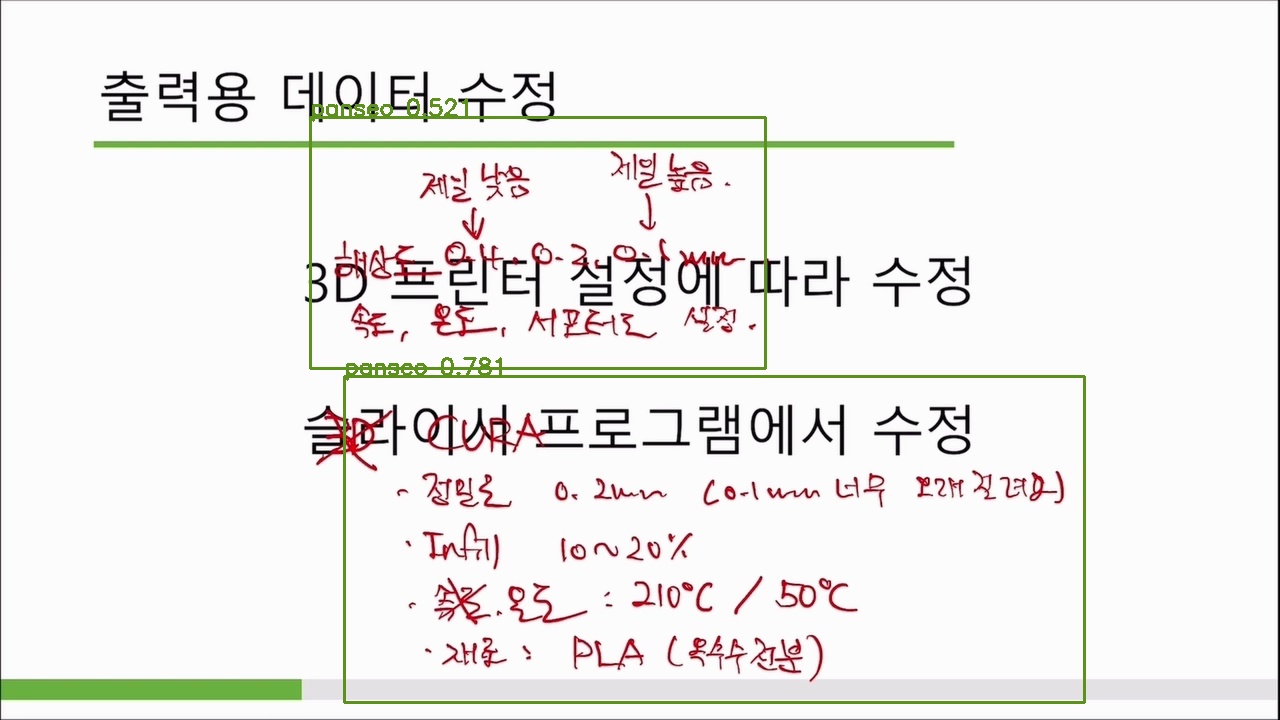 출력용 데이터 수정
panseo 0.521
제일 낮음 제일 높음.
해상도 0.4, 0.2, 0.1mm
3D 프린터 설정에 따라 수정
속도, 온도, 서포터도 설정.
panseo 0.781
슬라이서 프로그램에서 수정
CURA
· 정밀도 0.2mm (0.1mm 너무 오래 걸려요)
· Infill 10~20%
· 온도 : 210°C / 50°C
· 재료 : PLA (옥수수전분)